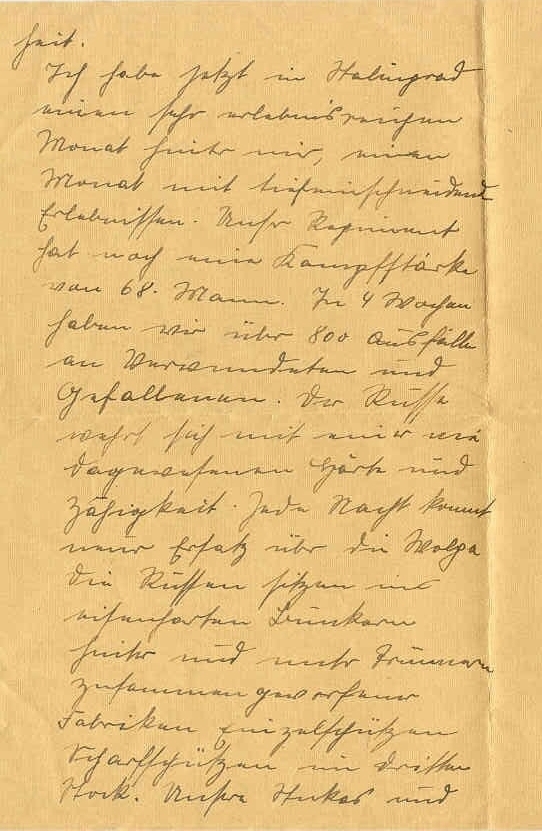 heit.
Ich habe jetzt in Stalingrad
einen sehr erlebnisreichen
Monat hinter mir, einen
Monat mit tiefeinschneidend
Erlebnissen. Unser Regiment
hat noch eine Kampfstärke
von 68. Mann. In 4 Wochen
haben wir über 800 Ausfälle
an Verwundeten und
Gefallenen. Der Russe
wehrt sich mit einer nie
dagewesenen Härte und
Zähigkeit. Jede Nacht kommt
neuer Ersatz über die Wolga
Die Russen sitzen in
eisenharten Bunkern
hinter und unter Trümmern
zusammengeworfener
Fabriken Einzelschützen
Scharfschützen im dritten
Stock. Unsere Stukas und